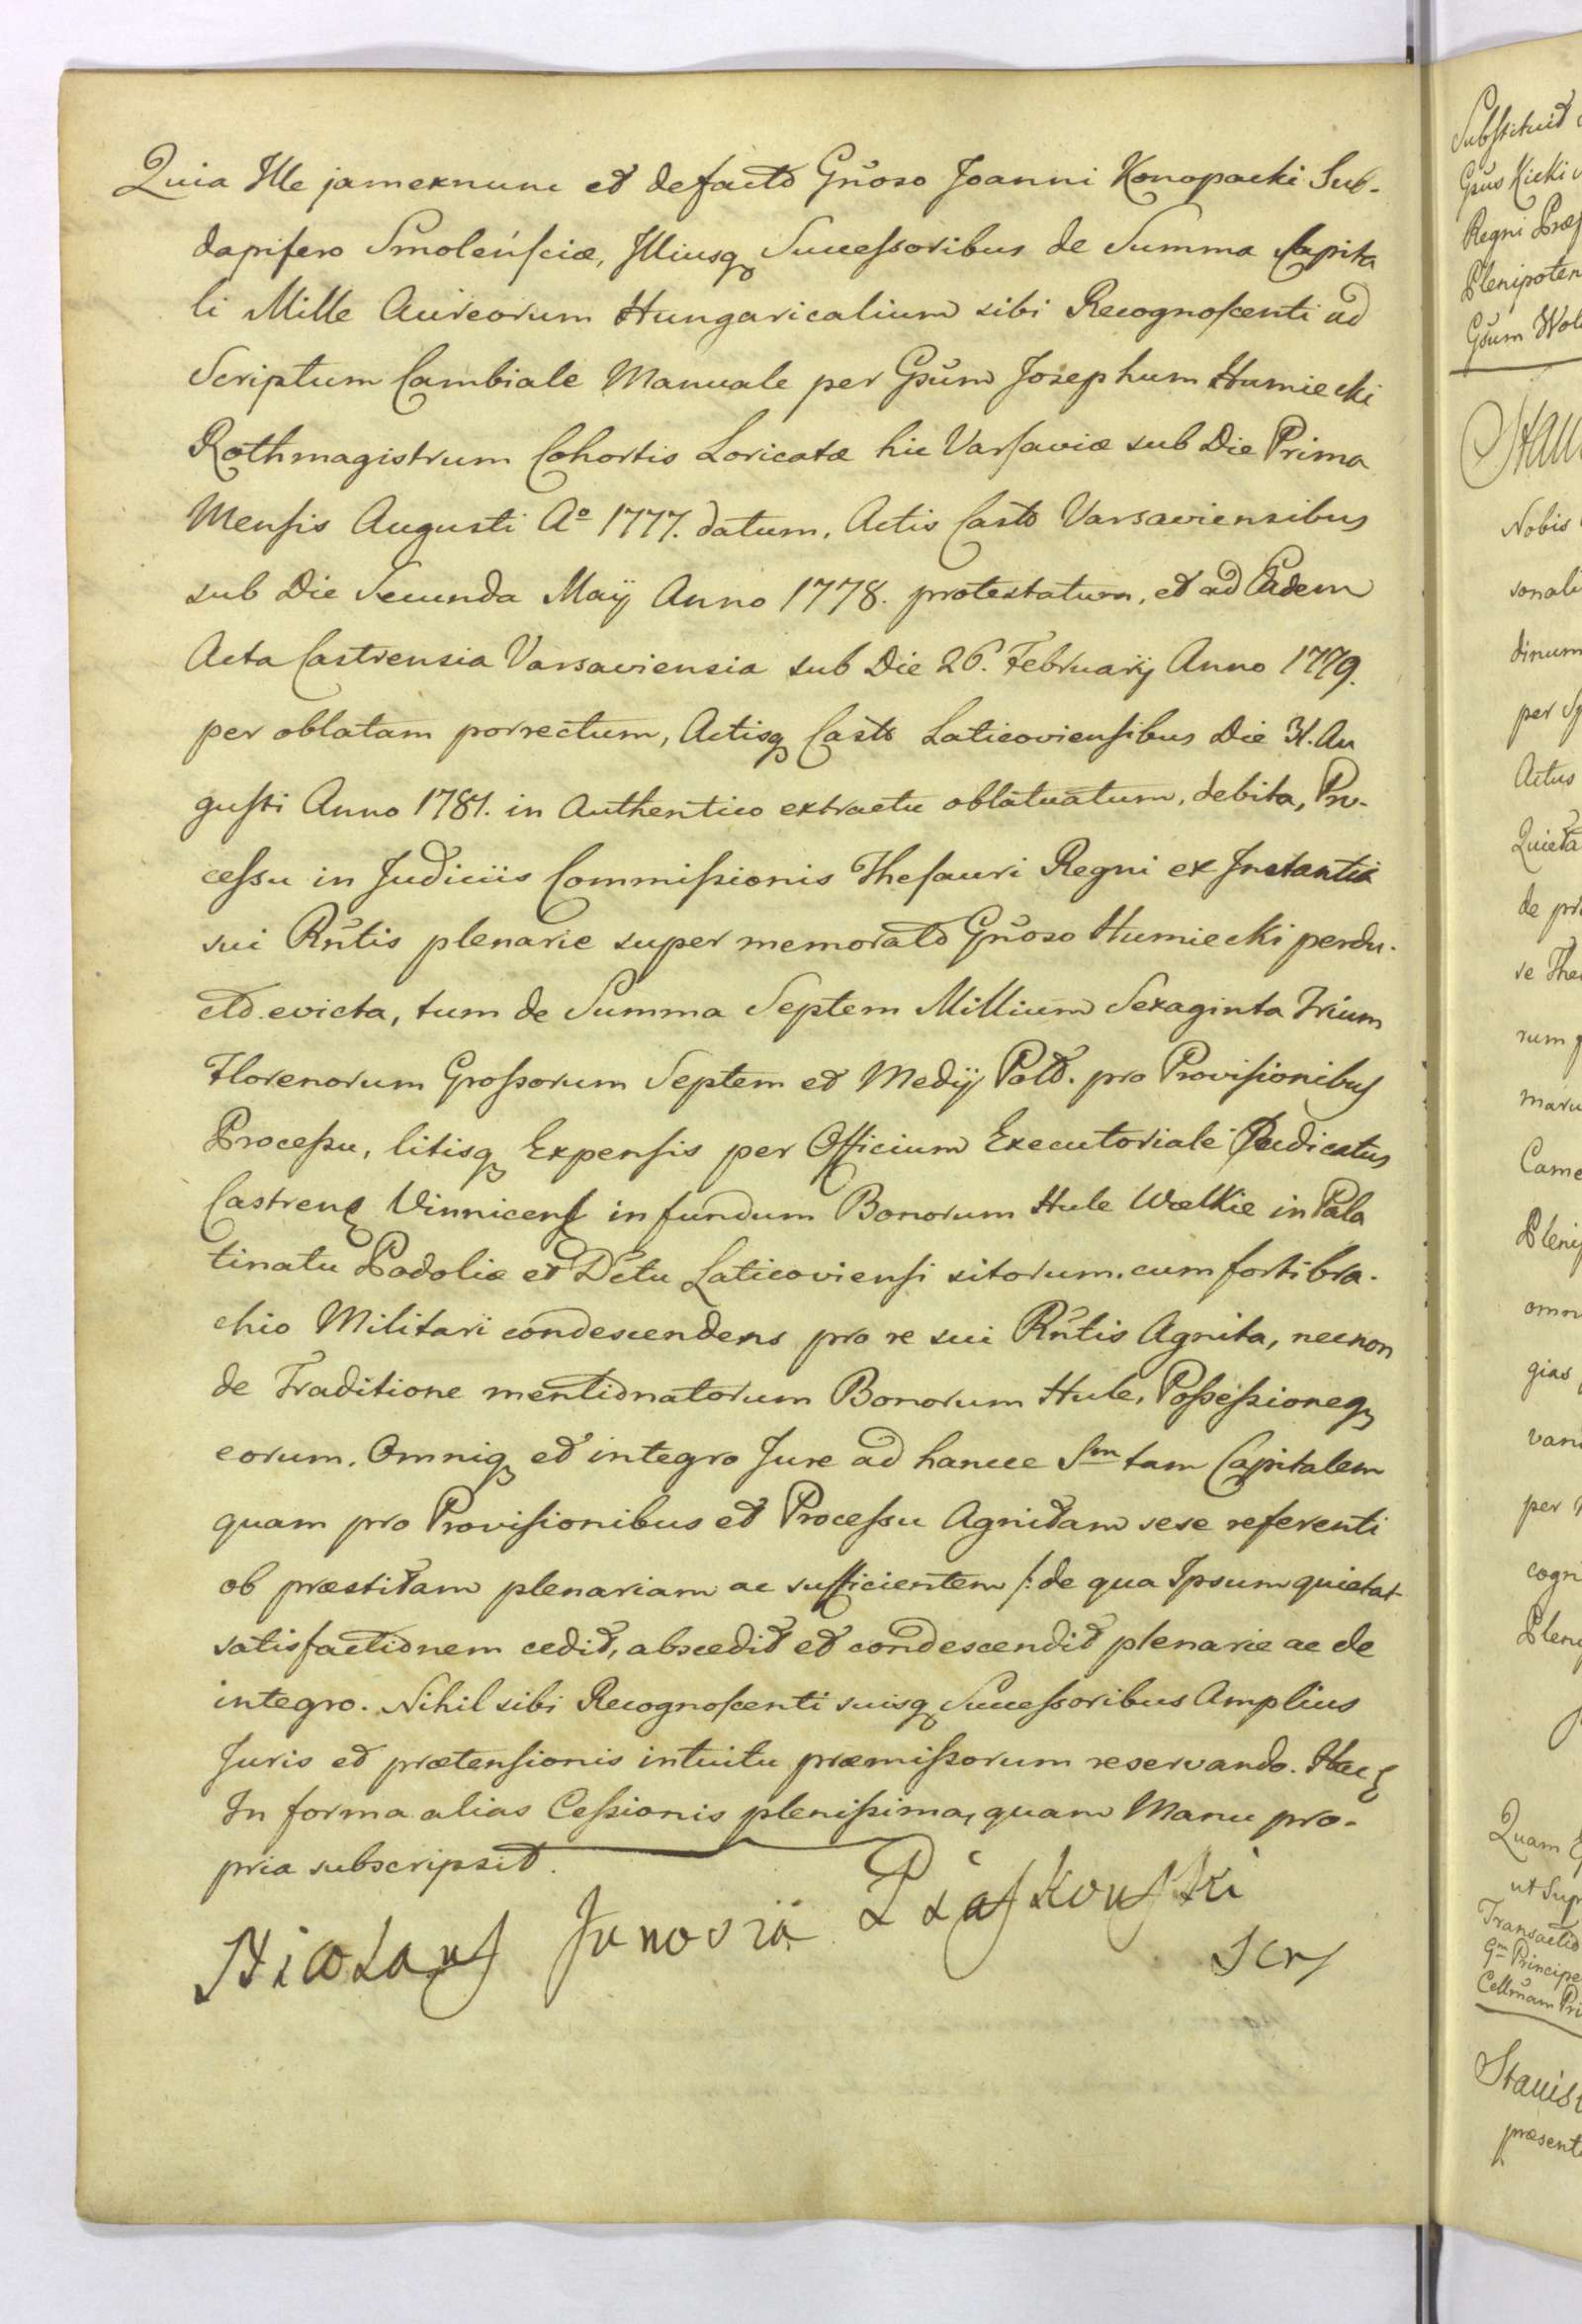 Quia Ille jamexnunc et defacto Gnoso Joanni Konopacki Sub-
dapifero Smolenſciæ, Illiusq Succeſsoribus de Summa Capita
li Mille Aureorum Hungaricalium sibi Recognoſcenti ad
Scriptum Cambiale Manuale per Gsum Josephum Humiecki
Rothmagistrum Cohortis Loricatæ hic Varſaviæ sub Die Prima
Menſis Augusti Aº 1777. datum, Actis Casto Varsaviensibus
sub Die Secunda Maÿ Anno 1778. protestatum, et ad Eadem
Acta Castrensia Varsaviensia sub Die 26. Februarij Anno 1779.
per oblatam porrectum, Actisq Casto Laticovienſibus Die 31. Au
guſti Anno 1781. in Authentico extractu oblatuatum, debita, Pro-
ceſsu in Judiciis Commiſsionis Theſauri Regni ex Instantia
sui Rntis plenarie super memorato Gnoso Humiecki perdu-
cto evicta, tum de Summa Septem Millium Sexaginta Trium
Florenorum Groſsorum Septem et Medÿ Polo. pro Proviſionibus
Proceſsu, litisq Expenſis per Officium Executoriale Judicatus
Castrens Vinnicens in fundum Bonorum Hule Wielkie in Pala
tinatu Podoliæ et Dctu Laticovienſi sitorum. cum forti bra-
chio Militari condescendens pro re sui Rntis Agnita, necnon
de Traditione mentionatorum Bonorum Hule, Poſseſsioneq
eorum. Omniq et integro Jure ad hancce Sm̄ tam Capitalem
quam pro Proviſionibus et Proceſsu Agnitam sese referenti
ob præstitam plenariam ac sufficientem /: de qua Ipsum quietat
satisfactionem cedit, abscedit et condescendit plenarie ac de
integro. Nihil sibi Recognoſcenti suisq Succeſsoribus Amplius
Juris et prætenſionis intuitu præmiſsorum reservando. Hac
In forma alias Ceſsionis pleniſsima, quam Manu pro-
pria subscripsit.
Nicolaus Junosza Piaſkowſki
Scr

Substituit
Gsus Kicki
Regni Præf
Plenipoten
Gsum Wol
Nobis
sonali
dinum
per
Actus
Quieta
de pr
se The
rum
maru
Came
Plenip
omn
gias
vani
per
cogn
Plen
Quam
ut Sup
Transactio
Gm Principe
Cellmam Pri
Stanis
præsent